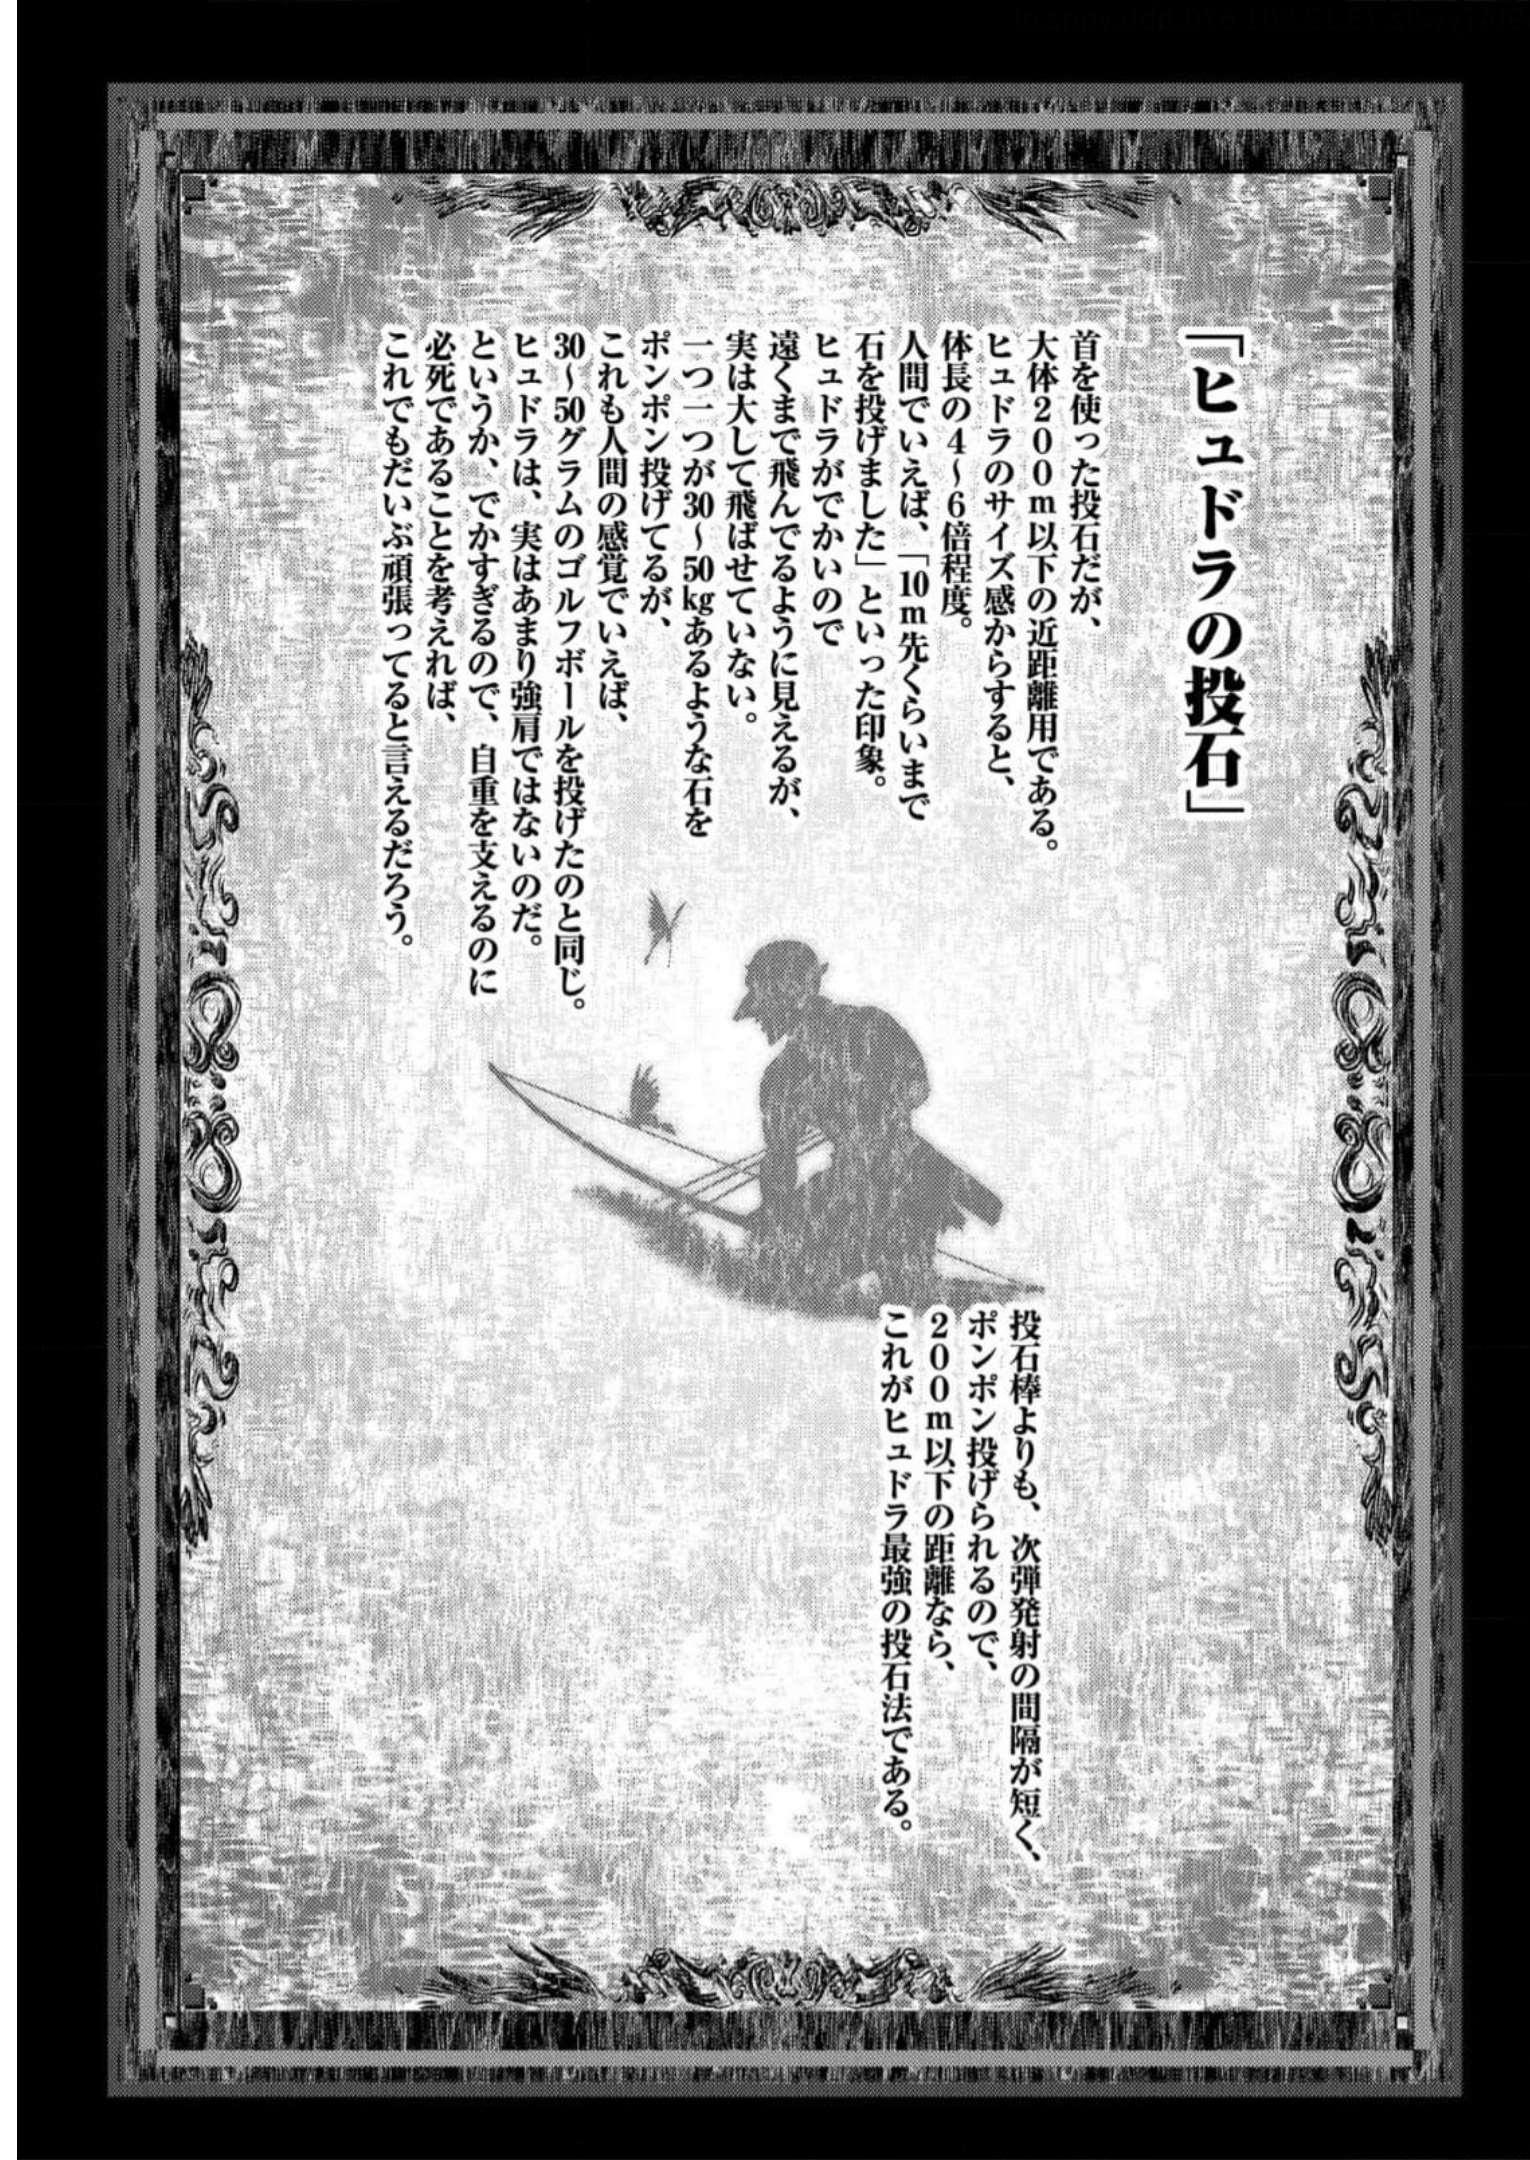 「ヒュドラの投石」
首を使った投石だが、
大体200m以下の近距離用である。
ヒュドラのサイズ感からすると、
体長の4〜6倍程度。
人間でいえば、「10m先くらいまで
石を投げました」といった印象。
ヒュドラがでかいので
遠くまで飛んでるように見えるが、
実は大して飛ばせていない。
一つ一つが30〜50kgあるような石を
ポンポン投げてるが、
これも人間の感覚でいえば、
30〜50グラムのゴルフボールを投げたのと同じ。
ヒュドラは、実はあまり強肩ではないのだ。
というか、でかすぎるので、自重を支えるのに
必死であることを考えれば、
これでもだいぶ頑張ってると言えるだろう。
投石棒よりも、次弾発射の間隔が短く、
ポンポン投げられるので、
200m以下の距離なら、
これがヒュドラ最強の投石法である。